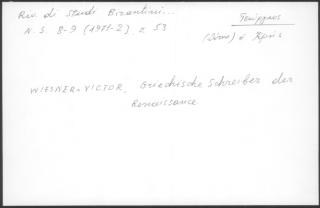 Riv. di Studi Bizantini...
N.S. 8-9 (1971-2) σ 53
Γεώργιος
WIESNER-VICTOR, Griechische Schreiber der
Renaissance